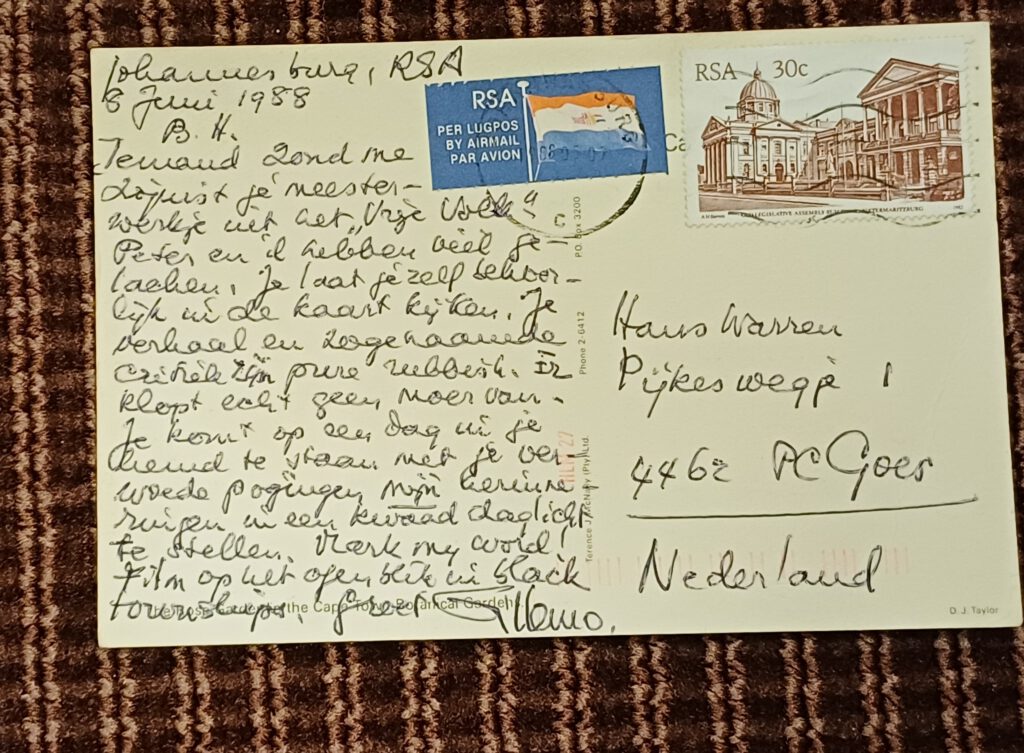 Johannesburg, RSA
8 Juni 1988
B. H.
Iemand zond me
zojuist je meester-
werkje uit het „Vrije Volk"
Peter en ik hebben veel ge-
lachen. Je laat jezelf behoor-
lijk in de kaart kijken. Je
verhaal en zogenaamde
critiek zijn pure rubbish. Er
klopt echt geen moer van.
Je komt op een dag in je
hemd te staan met je ver-
woede pogingen mijn herinne
ringen in een kwaad daglicht
te stellen. Mark my word!
Film op het ogenblik in black
townships. Groet Willem.
RSA
PER LUGPOS
BY AIRMAIL
PAR AVION
RSA 30c
LEGISLATIVE ASSEMBLY PIETERMARITZBURG
1982
Hans Warren
Pijkeswegje 1
4462 PC Goes
Nederland
P.O. Box 3200
Phone 2-6412
Terence J. McNally (Pty) Ltd.
the Cape Town Botanical Gardens.
D. J. Taylor